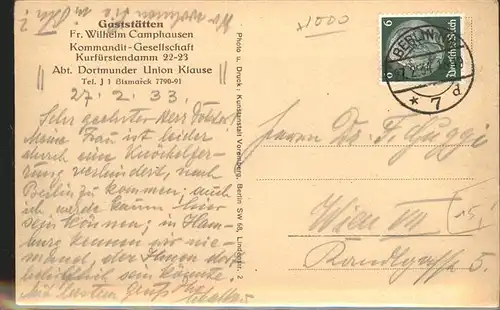 Gaststätten
Fr. Wilhelm Camphausen
Kommandit-Gesellschaft
Kurfürstendamm 22-23
Abt. Dortmunder Union Klause
Tel. J 1 Bismarck 7790-91
27. 2. 33.
Sehr geehrter Herr Doktor!
Meine Frau ist leider
durch eine
verhindert, nach
Berlin zu kommen; auch
ich werde kaum hier
sein können; in Ham-
burg kennen wir nie-
mand, der Ihnen dort
behilflich sein könnte.
Mit besten Gruß Ihr
Photo u. Druck: Kunstanstalt Vorenberg, Berlin SW 68, Lindenstr. 2
x1000
6
6
Deutsches Reich
BERLIN
* 7 d
Herrn Dr. F.
Wien VII
15.
Kandlgasse 5.